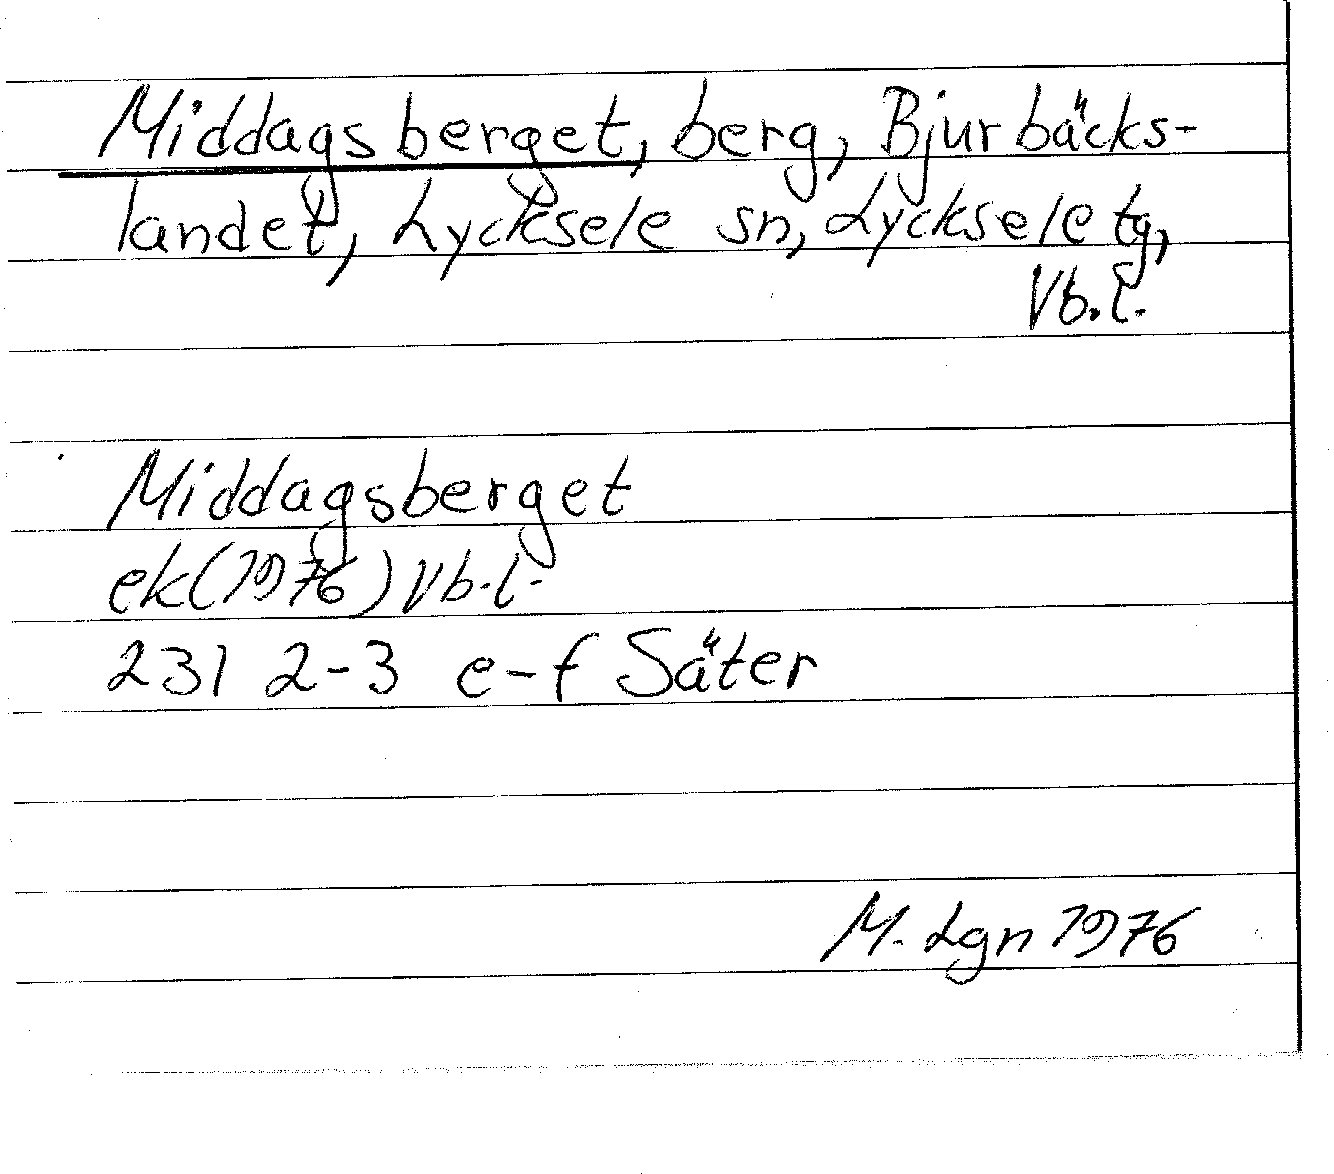 Middagsberget, berg, Bjurbäcks-
landet, Lycksele sn, Lycksele tg,
Vb.l.
Middagsberget
ek(1976) Vb.l.
231 2-3 e-f Säter
M. Lgn 1976